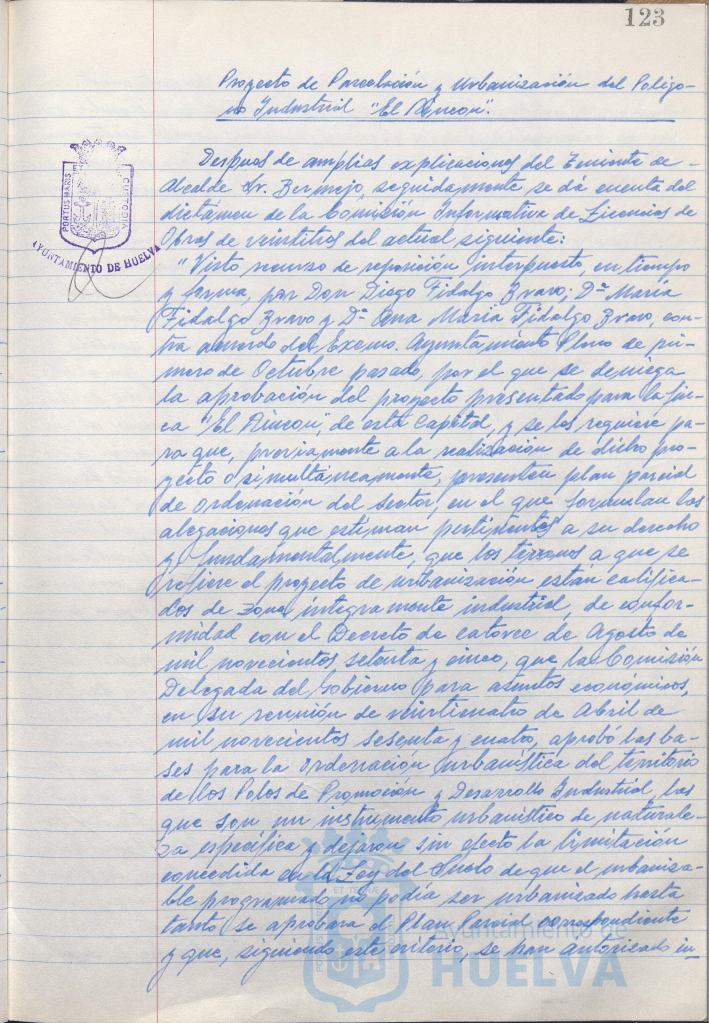 123
Proyecto de Parcelación y Urbanización del Polígo-
no Industrial "El Rincon".
Despues de amplias explicaciones del Teniente de
Alcalde Sr. Bermejo, seguidamente se dá cuenta del
dictámen de la Comisión Informativa de Licencias de
Obras de veintitres del actual siguiente:
"Visto recurso de reposición interpuesto, en tiempo
y forma, por Don Diego Fidalgo Bravo; Dª María
Fidalgo Bravo y Dª Ana María Fidalgo Bravo, con-
tra acuerdo del Excmo. Ayuntamiento Pleno de pri-
mero de Octubre pasado, por el que se deniega
la aprobación del proyecto presentado para la fin-
ca "El Rincon", de esta Capital, y se les requiere pa-
ra que, previamente a la realización de dicho pro-
yecto o simultáneamente, presenten plan parcial
de ordenación del sector, en el que formulan las
alegaciones que estiman pertinentes a su derecho
y fundamentalmente, que los terrenos a que se
refiere el proyecto de urbanización están califica-
dos de zona íntegramente industrial, de confor-
midad con el Decreto de catorce de Agosto de
mil novecientos setenta y cinco, que la Comisión
Delegada del Gobierno para asuntos económicos,
en su reunión de veinticuatro de Abril de
mil novecientos sesenta y cuatro, aprobó las ba-
ses para la ordenación urbanística del territorio
de los Polos de Promoción y Desarrollo Industrial, las
que son un instrumento urbanístico de naturale-
za específica y dejaron sin efecto la limitación
concedida en la Ley del Suelo de que el urbaniza-
ble programado no podía ser urbanizado hasta
tanto se aprobara el Plan Parcial correspondiente
y que, siguiendo este criterio, se han autorizado in-
PORTUS MARIS
CUSTODIA
AYUNTAMIENTO DE HUELVA
Ayuntamiento de
HUELVA